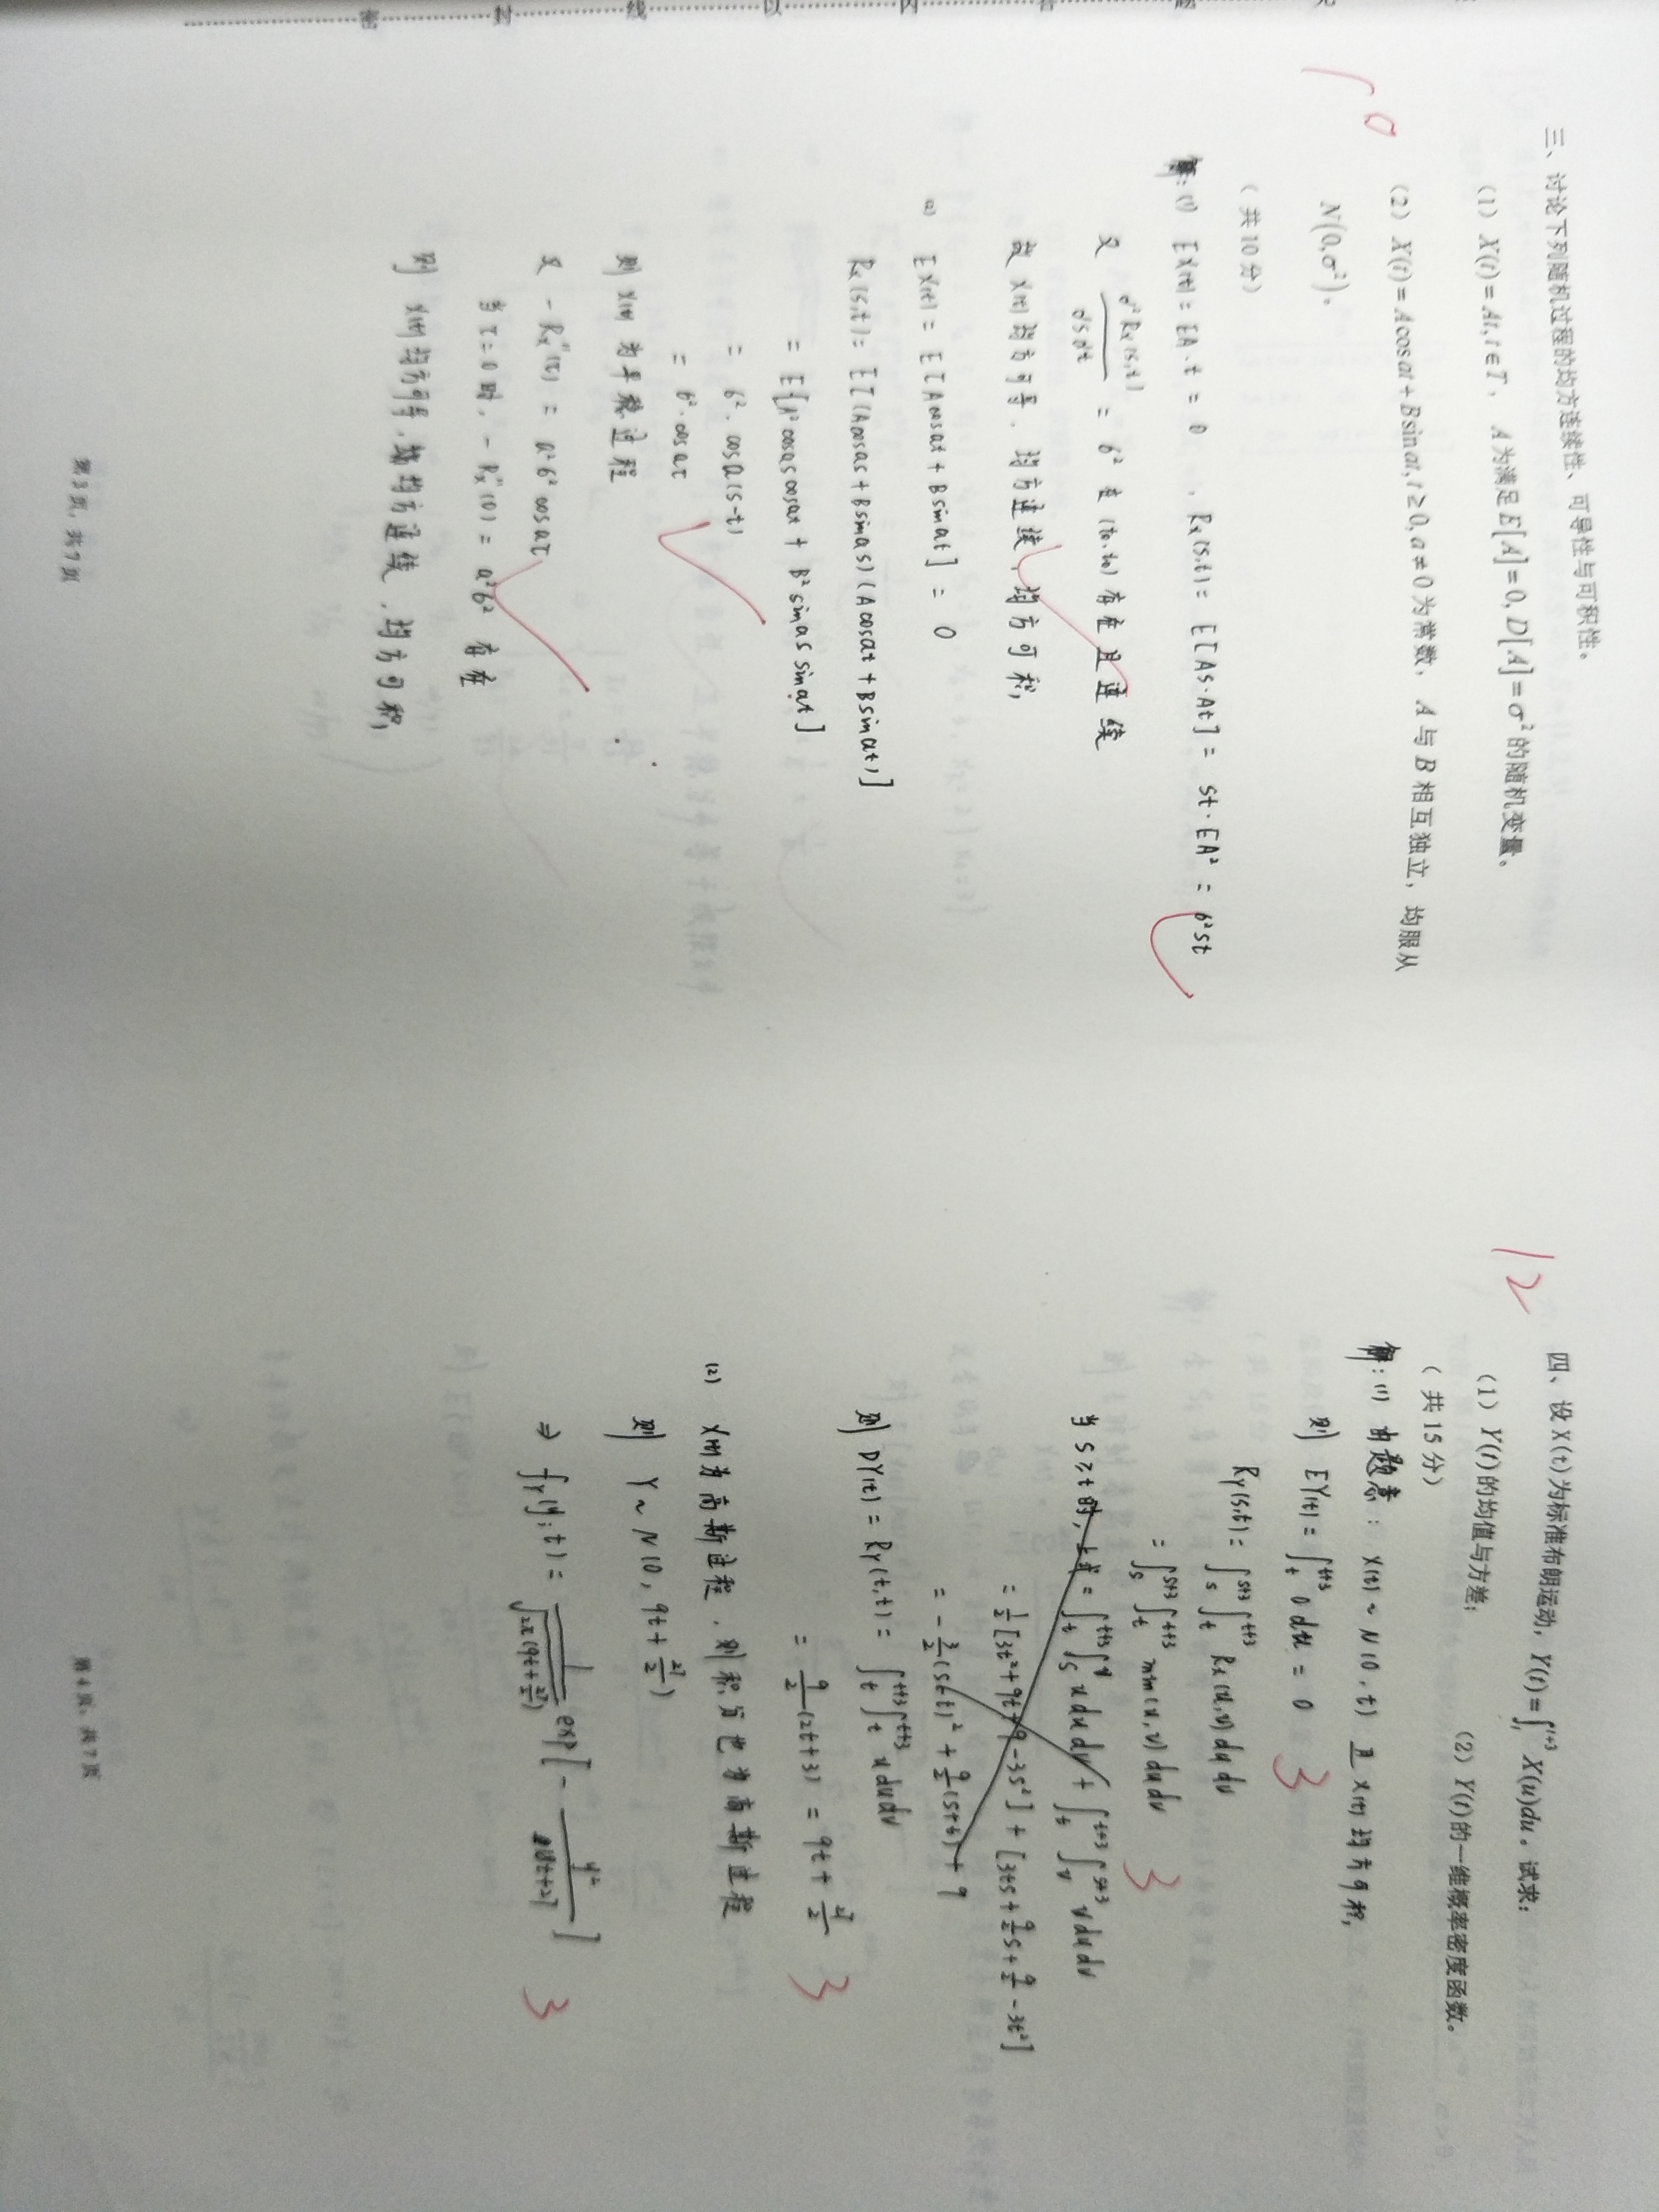 三、讨论下列随机过程的均方连续性、可导性与可积性。
（1）X(t)=At,t∈T， A为满足E[A]=0,D[A]=σ²的随机变量。
（2）X(t)=Acosat+Bsinat,t≥0,a≠0为常数， A与B相互独立，均服从
N(0,σ²)。
10
（ 共10分）
解:(1) EX(t)=EA·t = 0 , Rx(s,t)= E[As·At] = st·EA² = 6²st
又 ∂²Rx(s,t)/∂s∂t = 6² 在(t0,t0)存在且连续
故X(t)均方可导，均方连续，均方可积,
(2) EX(t)= E[Acosat + Bsinat] = 0
Rx(s,t)= E[(Acosas+Bsinas)(Acosat+Bsinat)]
= E[A²cosascosat + B²sinas sinat]
= 6²·cosa(s-t)
= 6²·cosaτ
则X(t)为平稳过程
又 -Rx''(τ) = a²6²cosaτ
当τ=0时, -Rx''(0)= a²6² 存在
则 X(t)均方可导, 均方连续, 均方可积,
第3页，共7页
12
四、设X(t)为标准布朗运动，Y(t)=∫_t^{t+3} X(u)du。试求：
（1）Y(t)的均值与方差； （2）Y(t)的一维概率密度函数。
（ 共15分）
解:(1) 由题意: X(t)~N(0,t) 且X(t)均方可积,
则 EY(t)= ∫_t^{t+3} 0 du = 0 3
RY(s,t)= ∫_s^{s+3}∫_t^{t+3} Rx(u,v)dudv
= ∫_s^{s+3}∫_t^{t+3} min(u,v)dudv 3
当s≥t时, 上式= ∫_t^{t+3}∫_s^v ududv + ∫_t^{t+3}∫_v^{s+3} vdudv
= 1/2[3t²+9t+9-3s²] + [3ts+9/2s+9/2-3t²]
= -3/2(s-t)²+9/2(s+t)+9
则 DY(t)= RY(t,t)= ∫_t^{t+3}∫_t^{t+3} ududv
= 9/2(2t+3) = 9t+27/2 3
(2) X(t)为高斯过程, 则积分也为高斯过程
则 Y~N(0, 9t+27/2)
⇒ fY(y;t)= 1/√(2π(9t+27/2)) exp[- y²/(18t+27)] 3
第4页，共7页